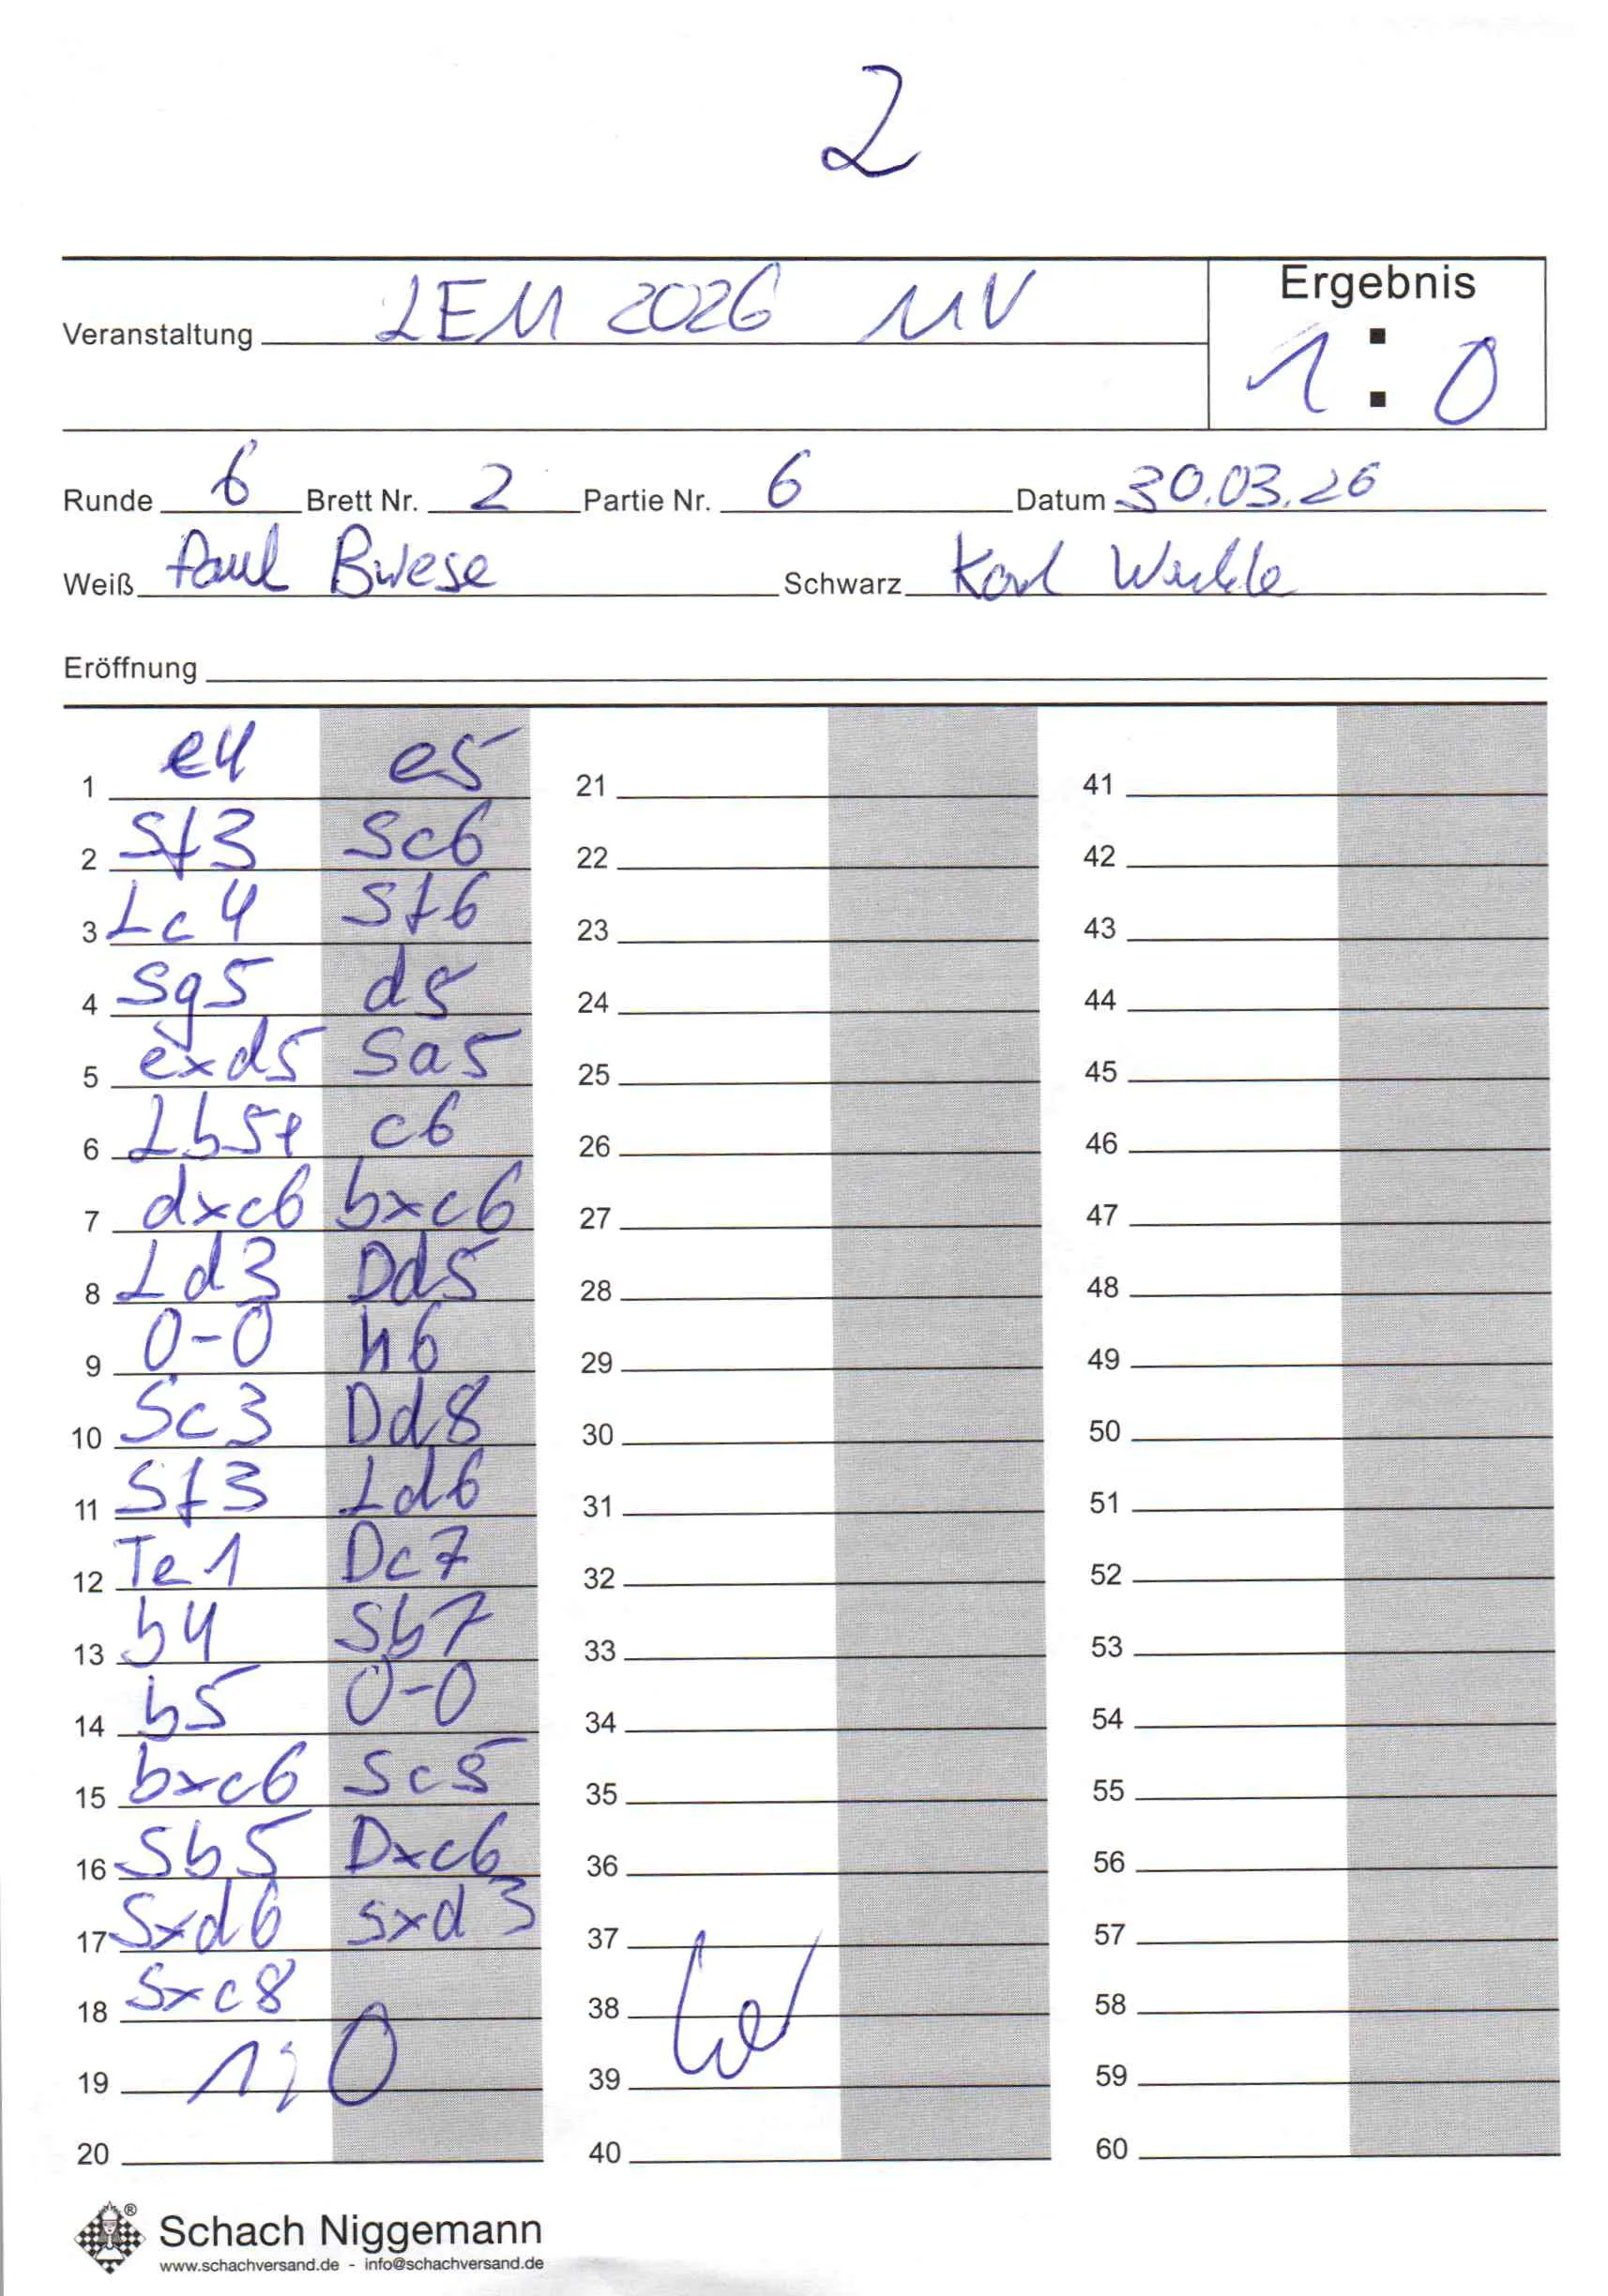 2
Veranstaltung LEM 2026 MV
Ergebnis
1 : 0
Runde 6 Brett Nr. 2 Partie Nr. 6 Datum 30.03.26
Weiß Paul Schwarz
Eröffnung
1 e4 e5 21 41
2 Sf3 Sc6 22 42
3 Lc4 Sf6 23 43
4 Sg5 d5 24 44
5 exd5 Sa5 25 45
6 Lb5+ c6 26 46
7 dxc6 bxc6 27 47
8 Ld3 Dd5 28 48
9 0-0 h6 29 49
10 Sc3 Dd8 30 50
11 Sf3 Ld6 31 51
12 Te1 Dc7 32 52
13 b4 Sb7 33 53
14 b5 0-0 34 54
15 bxc6 Sc5 35 55
16 Sb5 Dxc6 36 56
17 Sxd6 sxd3 37 57
18 Sxc8 38 58
19 1:0 39 59
20 40 60
Schach Niggemann
www.schachversand.de - info@schachversand.de